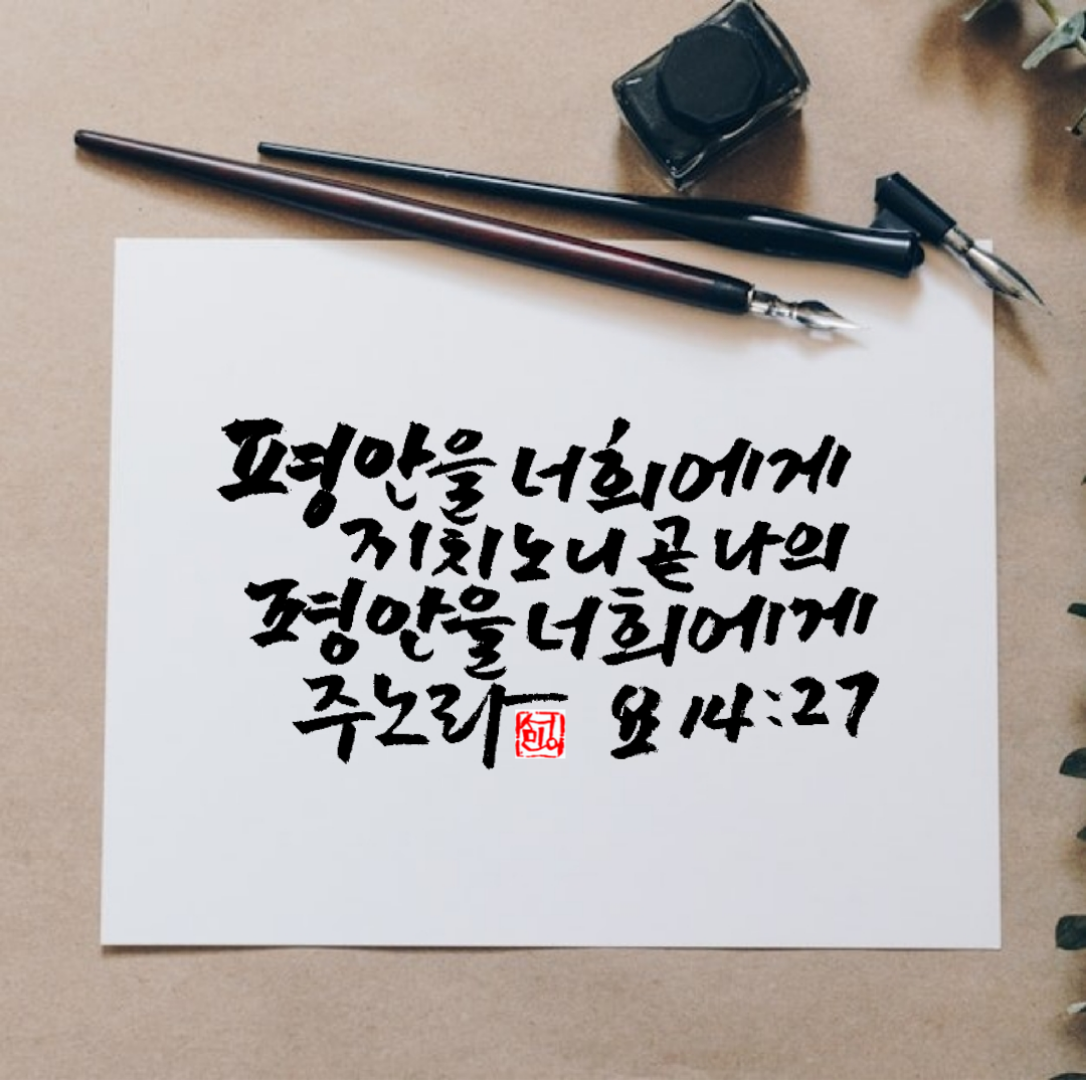 평안을 너희에게
끼치노니 곧 나의
평안을 너희에게
주노라 요 14:27